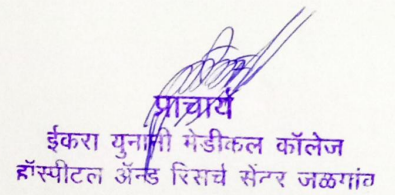 प्राचार्य
ईकरा युनानी मेडीकल कॉलेज
हॉस्पीटल ॲन्ड रिसर्च सेंटर जळगांव